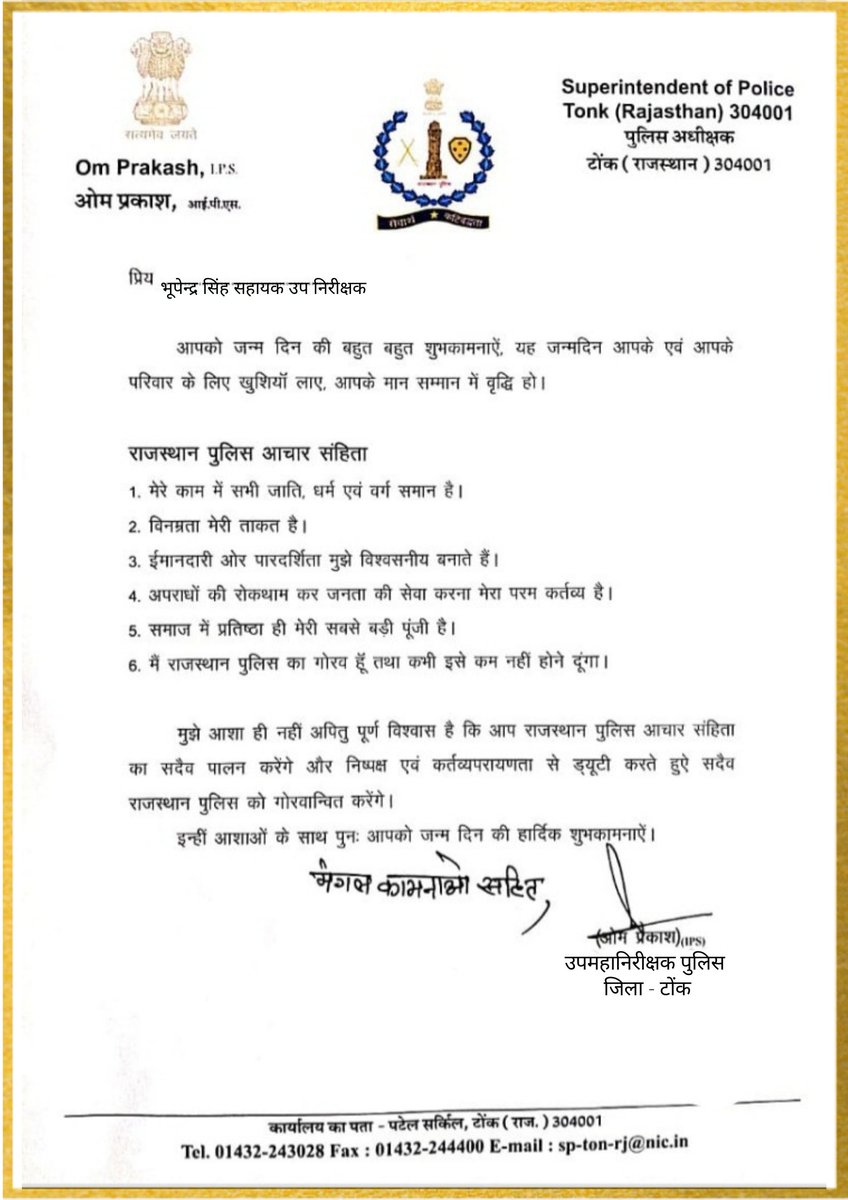 सत्यमेव जयते
Om Prakash, I.P.S.
ओम प्रकाश, आई.पी.एस.
राजस्थान पुलिस
सेवार्थ कटिबद्धता
Superintendent of Police
Tonk (Rajasthan) 304001
पुलिस अधीक्षक
टोंक ( राजस्थान ) 304001
प्रिय भूपेन्द्र सिंह सहायक उप निरीक्षक
आपको जन्म दिन की बहुत बहुत शुभकामनाऐं, यह जन्मदिन आपके एवं आपके
परिवार के लिए खुशियॉ लाए, आपके मान सम्मान में वृद्धि हो।
राजस्थान पुलिस आचार संहिता
1. मेरे काम में सभी जाति, धर्म एवं वर्ग समान है।
2. विनम्रता मेरी ताकत है।
3. ईमानदारी ओर पारदर्शिता मुझे विश्वसनीय बनाते हैं।
4. अपराधों की रोकथाम कर जनता की सेवा करना मेरा परम कर्तव्य है।
5. समाज में प्रतिष्ठा ही मेरी सबसे बड़ी पूंजी है।
6. मैं राजस्थान पुलिस का गोरव हूॅ तथा कभी इसे कम नहीं होने दूंगा।
मुझे आशा ही नहीं अपितु पूर्ण विश्वास है कि आप राजस्थान पुलिस आचार संहिता
का सदैव पालन करेंगे और निष्पक्ष एवं कर्तव्यपरायणता से ड्यूटी करते हुऐ सदैव
राजस्थान पुलिस को गोरवान्वित करेंगे।
इन्हीं आशाओं के साथ पुनः आपको जन्म दिन की हार्दिक शुभकामनाऐं।
मंगल कामनाओ सहित,
(ओम प्रकाश)(IPS)
उपमहानिरीक्षक पुलिस
जिला - टोंक
कार्यालय का पता - पटेल सर्किल, टोंक ( राज. ) 304001
Tel. 01432-243028 Fax : 01432-244400 E-mail : sp-ton-rj@nic.in